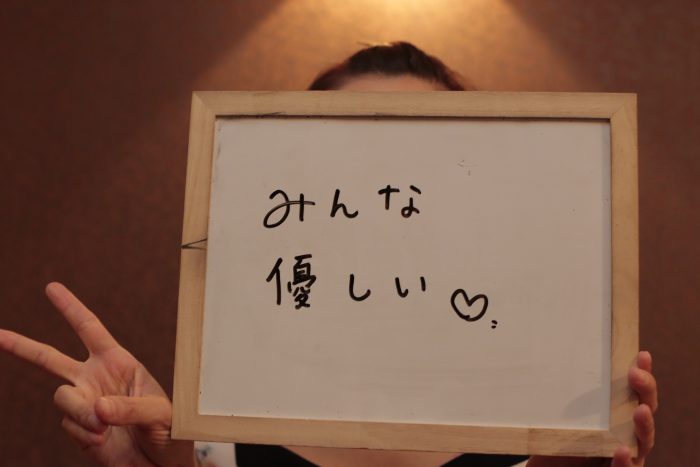 みんな
優しい♡